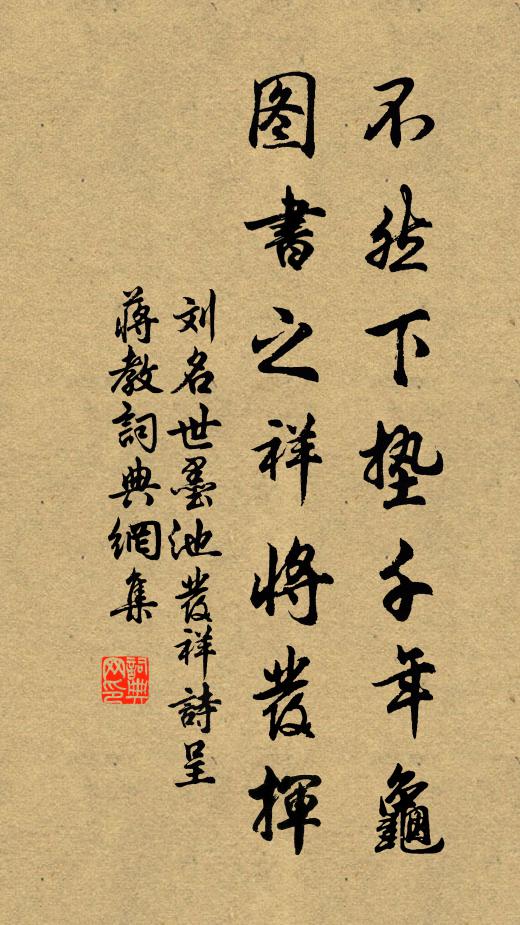 不然下垫千年龜
图書之祥將發揮
刘名世墨池發祥詩呈
蔣教詞典網集
詞典网印